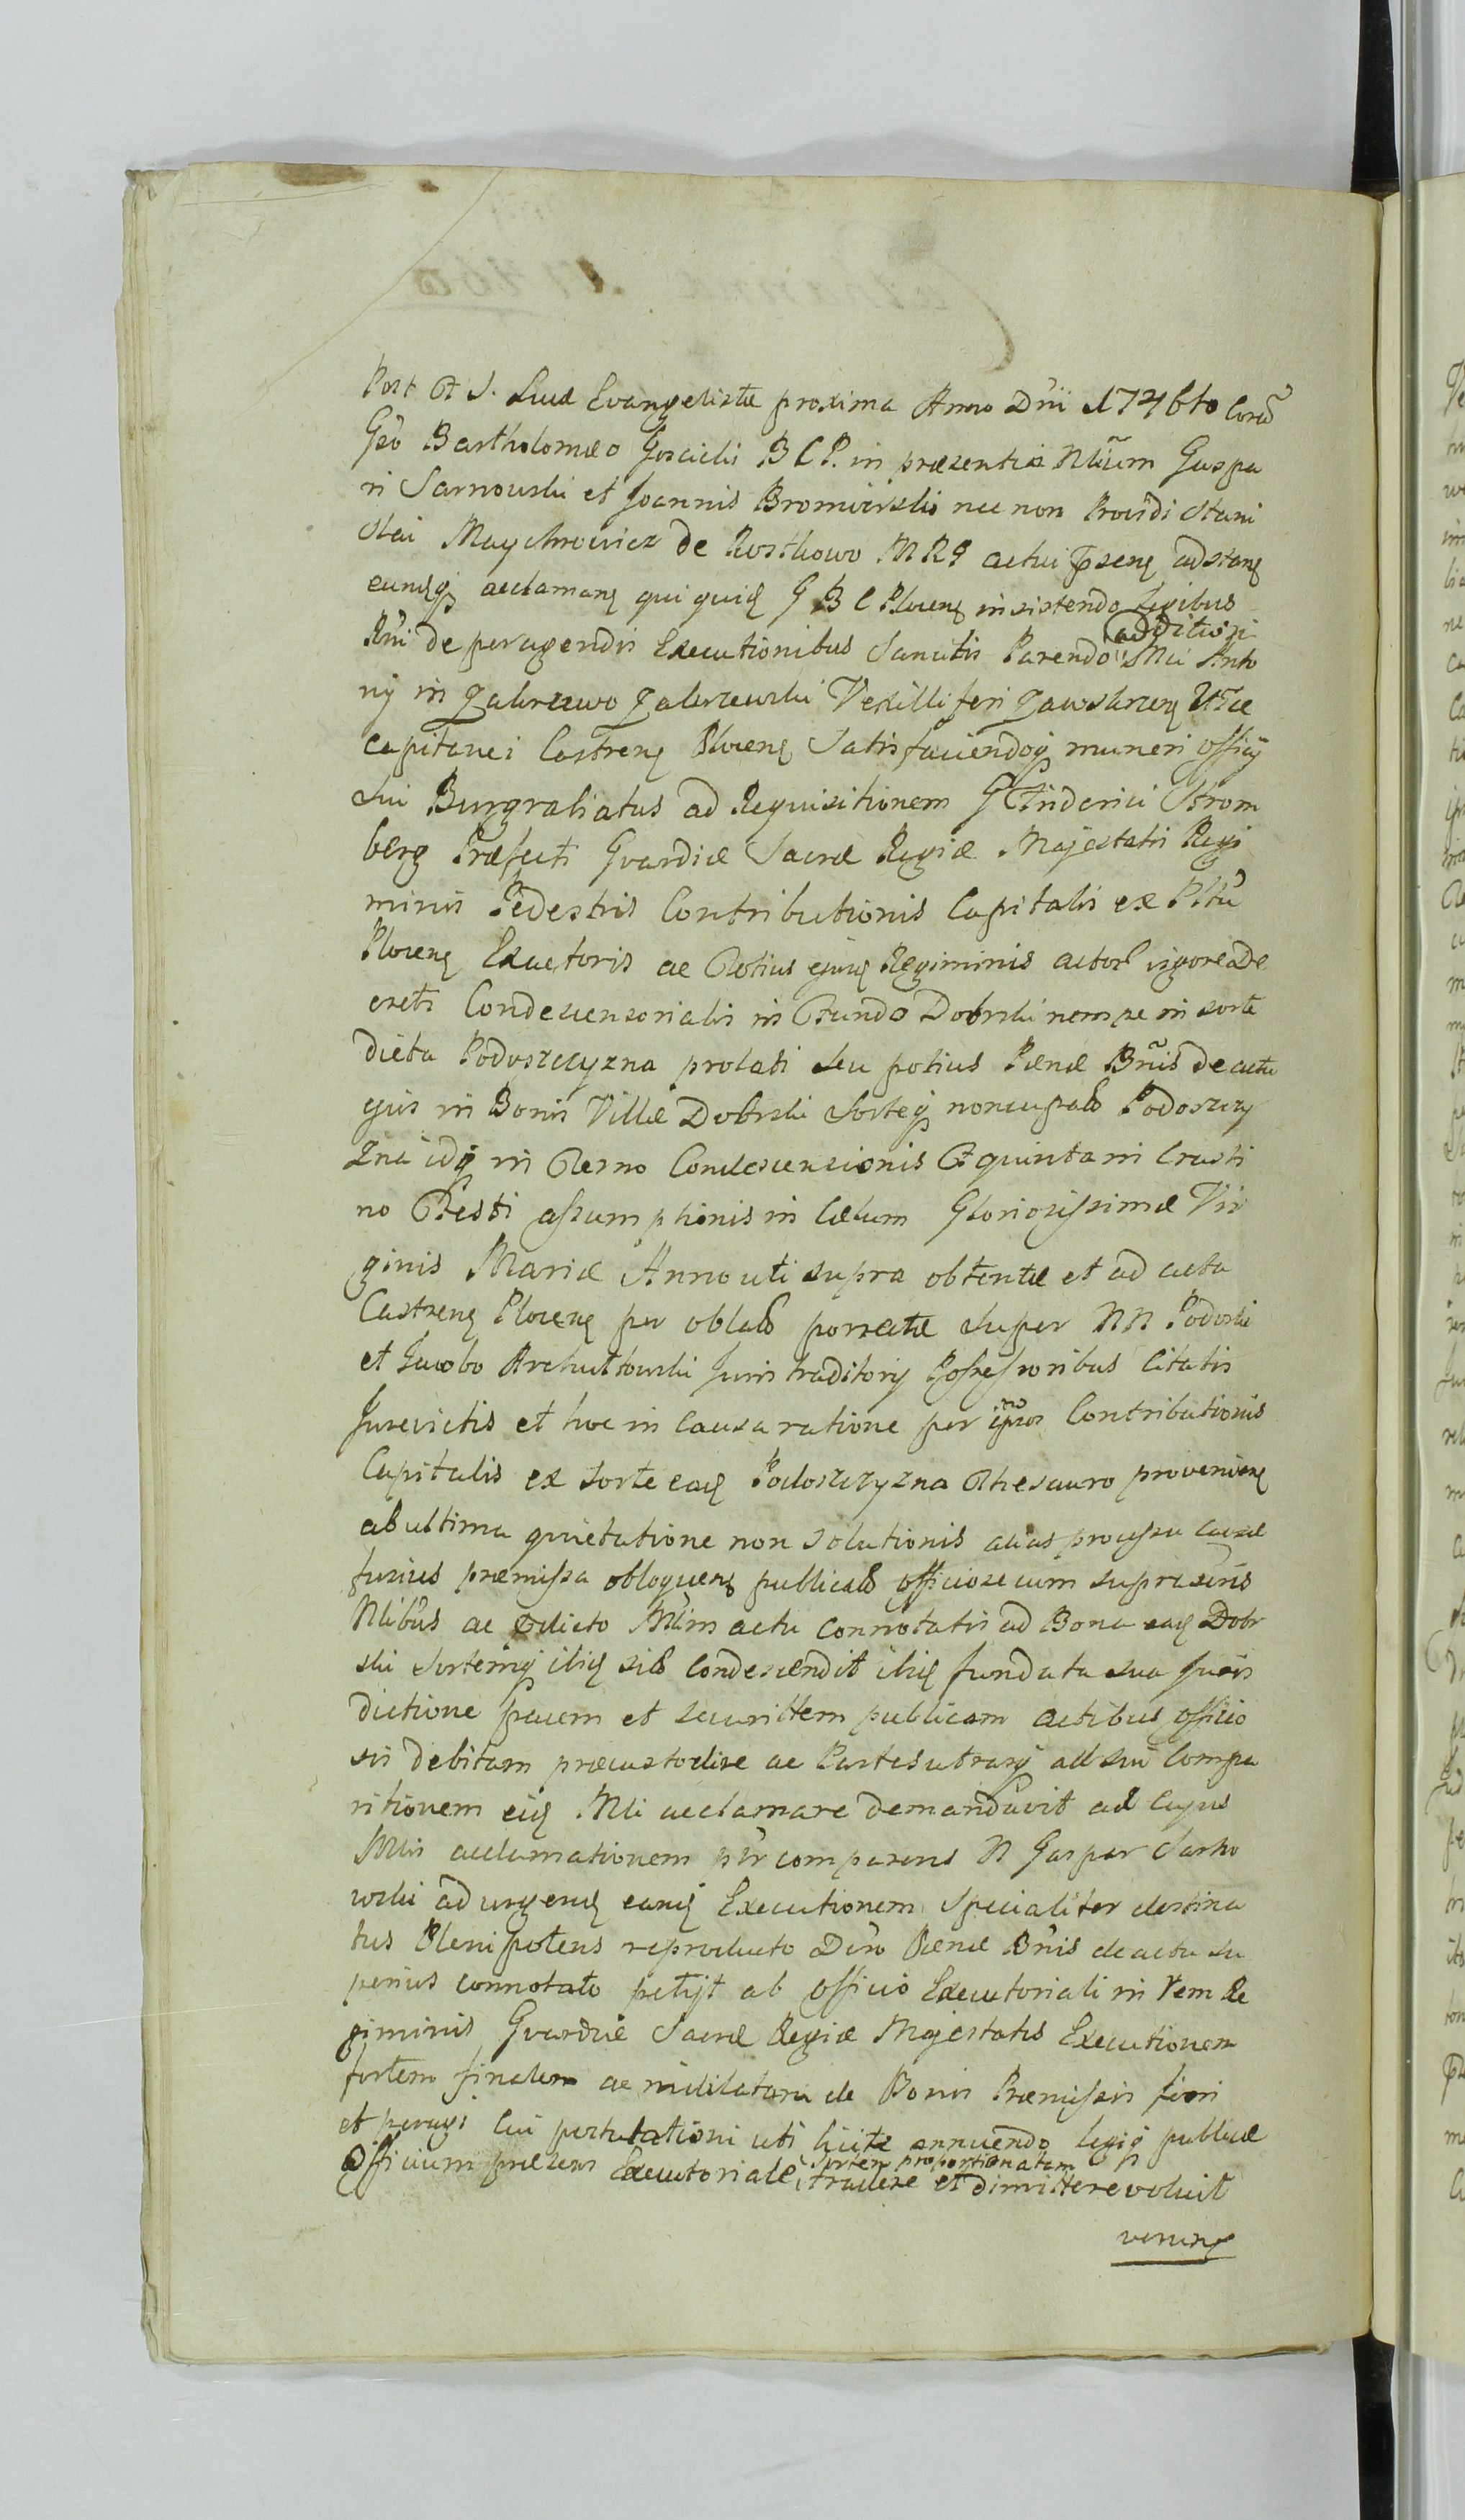 Post F S. Lucæ Evangelistæ proxima Anno Dni 1746to Corā
Gso Bartholomæo Goscicki B C P. in præsentia Nlium Gaspa
ri Sarnowski et Joannis Bromirski nec non Providi Stani
slai Maychrowicz de Rostkowo M R G actui pseñ adstañ
eumqꝫ acclamañ qui quid G B C Ploceñ insistendo Legibus
Rni de peragendis Executionibus Sancitis Parendo additioni Mci Anto
nij in Zakrzewo Zakrzewski Vexilliferi Zawskrzeñ Vice
capitanei Castreñ Ploceñ Satisfaciendoqꝫ muneri officij
sui Burgrabiatus ad Requisitionem G Friderici Strom
berg Præfecti Gvardiæ Sacræ Regiæ Majestatis Regi
minis Pedestris Contributionis Capitalis ex Pltu
Ploceñ Exactoris ac Totius ejusd Regiminis actor vigore De
creti Condescensorialis in Fundo Dobrski nempe in sorte
dicta Podoszczyzna prolati seu potius Pænæ Bnis de actu
ejus in Bonis Villæ Dobrski sorteqꝫ noncupato Podoszczy
zna idqꝫ in Termo Condescensionis F quinta in Crasti
no Festi assumptionis in Cælum Gloriosissimæ Vir
ginis Mariæ Anno uti supra obtentæ et ad acta
Castreñ Ploceñ per oblatō porrectæ super NN Podoski
et Jacobo Archuttowski Juris traditorij Possessoribus Citatis
Jurevictis et hoc in causa ratione per ipsos Contributionis
Capitalis ex sorte ead Podoszczyzna Thesauro provenieñ
ab ultima quietatione non solutionis alias processu causæ
fusius præmissa obloqueñ publicatō officiose cum suprascris
Nlibus ac predicto Mlim actu connotatis ad Bona ead Dobr
ski Sortemqꝫ ibid sitō Condescendit ibiqꝫ fundata sua Juris
dictione pacem et securittem publicam actibus officio
sis debitam præcustodire ac Partes utrasqꝫ ad sui Compa
ritionem eid Mli acclamare demandavit ad cujus
Mlis acclamationem ptr comparens N Gaspar Sarno
wski ad urgend eand Executionem Specialiter destina
tus Plenipotens reproducto Dcro Pænæ Bnis de actu su
perius connotato petijt ab Officio Executoriali in rem Re
giminis Gvardiæ Sacræ Regiæ Majestatis Executionem
fortem finalem ac militatam de Bonis Præmissis fieri
et peragi Cui postulationi uti licitæ annuendo legiqꝫ publicæ
Officium præsens Executoriale sortem proportionatam tradere et dimittere voluit
verum